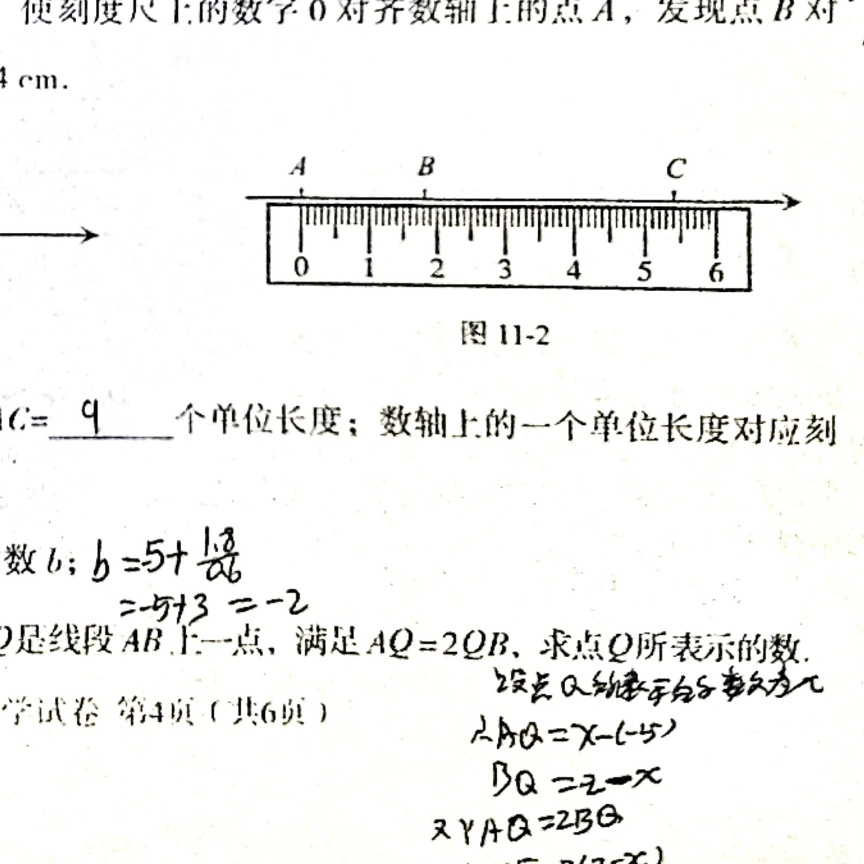 使刻度尺上的数字0对齐数轴上的点A，发现点B对
4 cm.
A B C
0 1 2 3 4 5 6
图 11-2
AC= 9 个单位长度；数轴上的一个单位长度对应刻
数b; b=5+1.8/0.6
=-5+3 =-2
Q是线段AB上一点，满足AQ=2QB，求点Q所表示的数.
设点Q
学试卷 第4页（共6页）
∴AQ=x-(-5)
BQ=-2-x
又∵AQ=2BQ